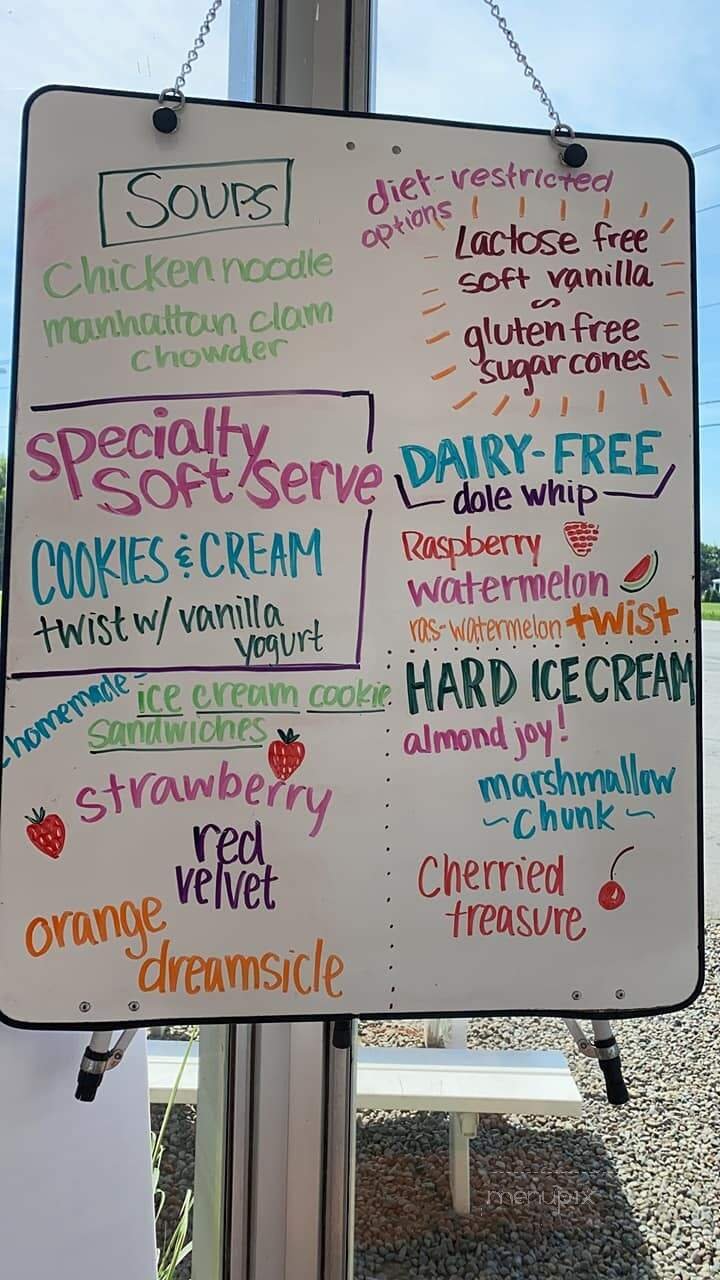 Soups
Chicken noodle
manhattan clam
chowder
specialty
soft serve
COOKIES & CREAM
twist w/ vanilla
yogurt
homemade
ice cream cookie
sandwiches
strawberry
red
velvet
orange
dreamsicle
diet-restricted
options
Lactose free
soft vanilla
gluten free
sugar cones
DAIRY-FREE
dole whip
Raspberry
watermelon
ras-watermelon twist
HARD ICE CREAM
almond joy!
marshmallow
~chunk~
Cherried
treasure
menupix